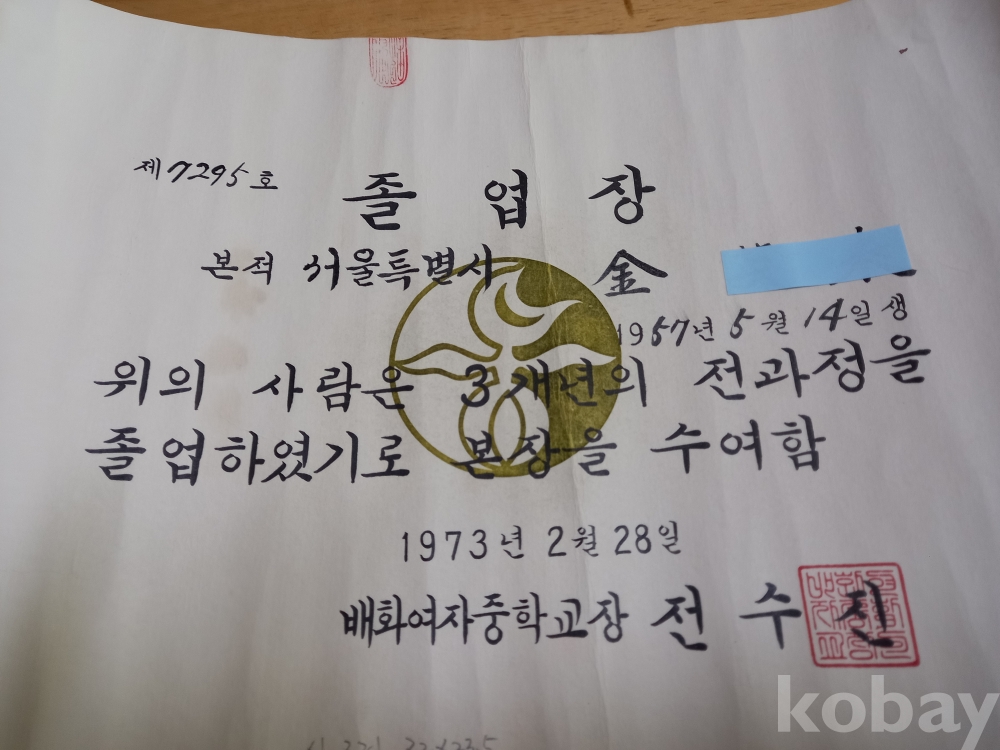 제7295호
졸업장
본적 서울특별시
金
1957년 5월 14일생
위의 사람은 3개년의 전과정을
졸업하였기로 본장을 수여함
1973년 2월 28일
배화여자중학교장 전수진
kobay